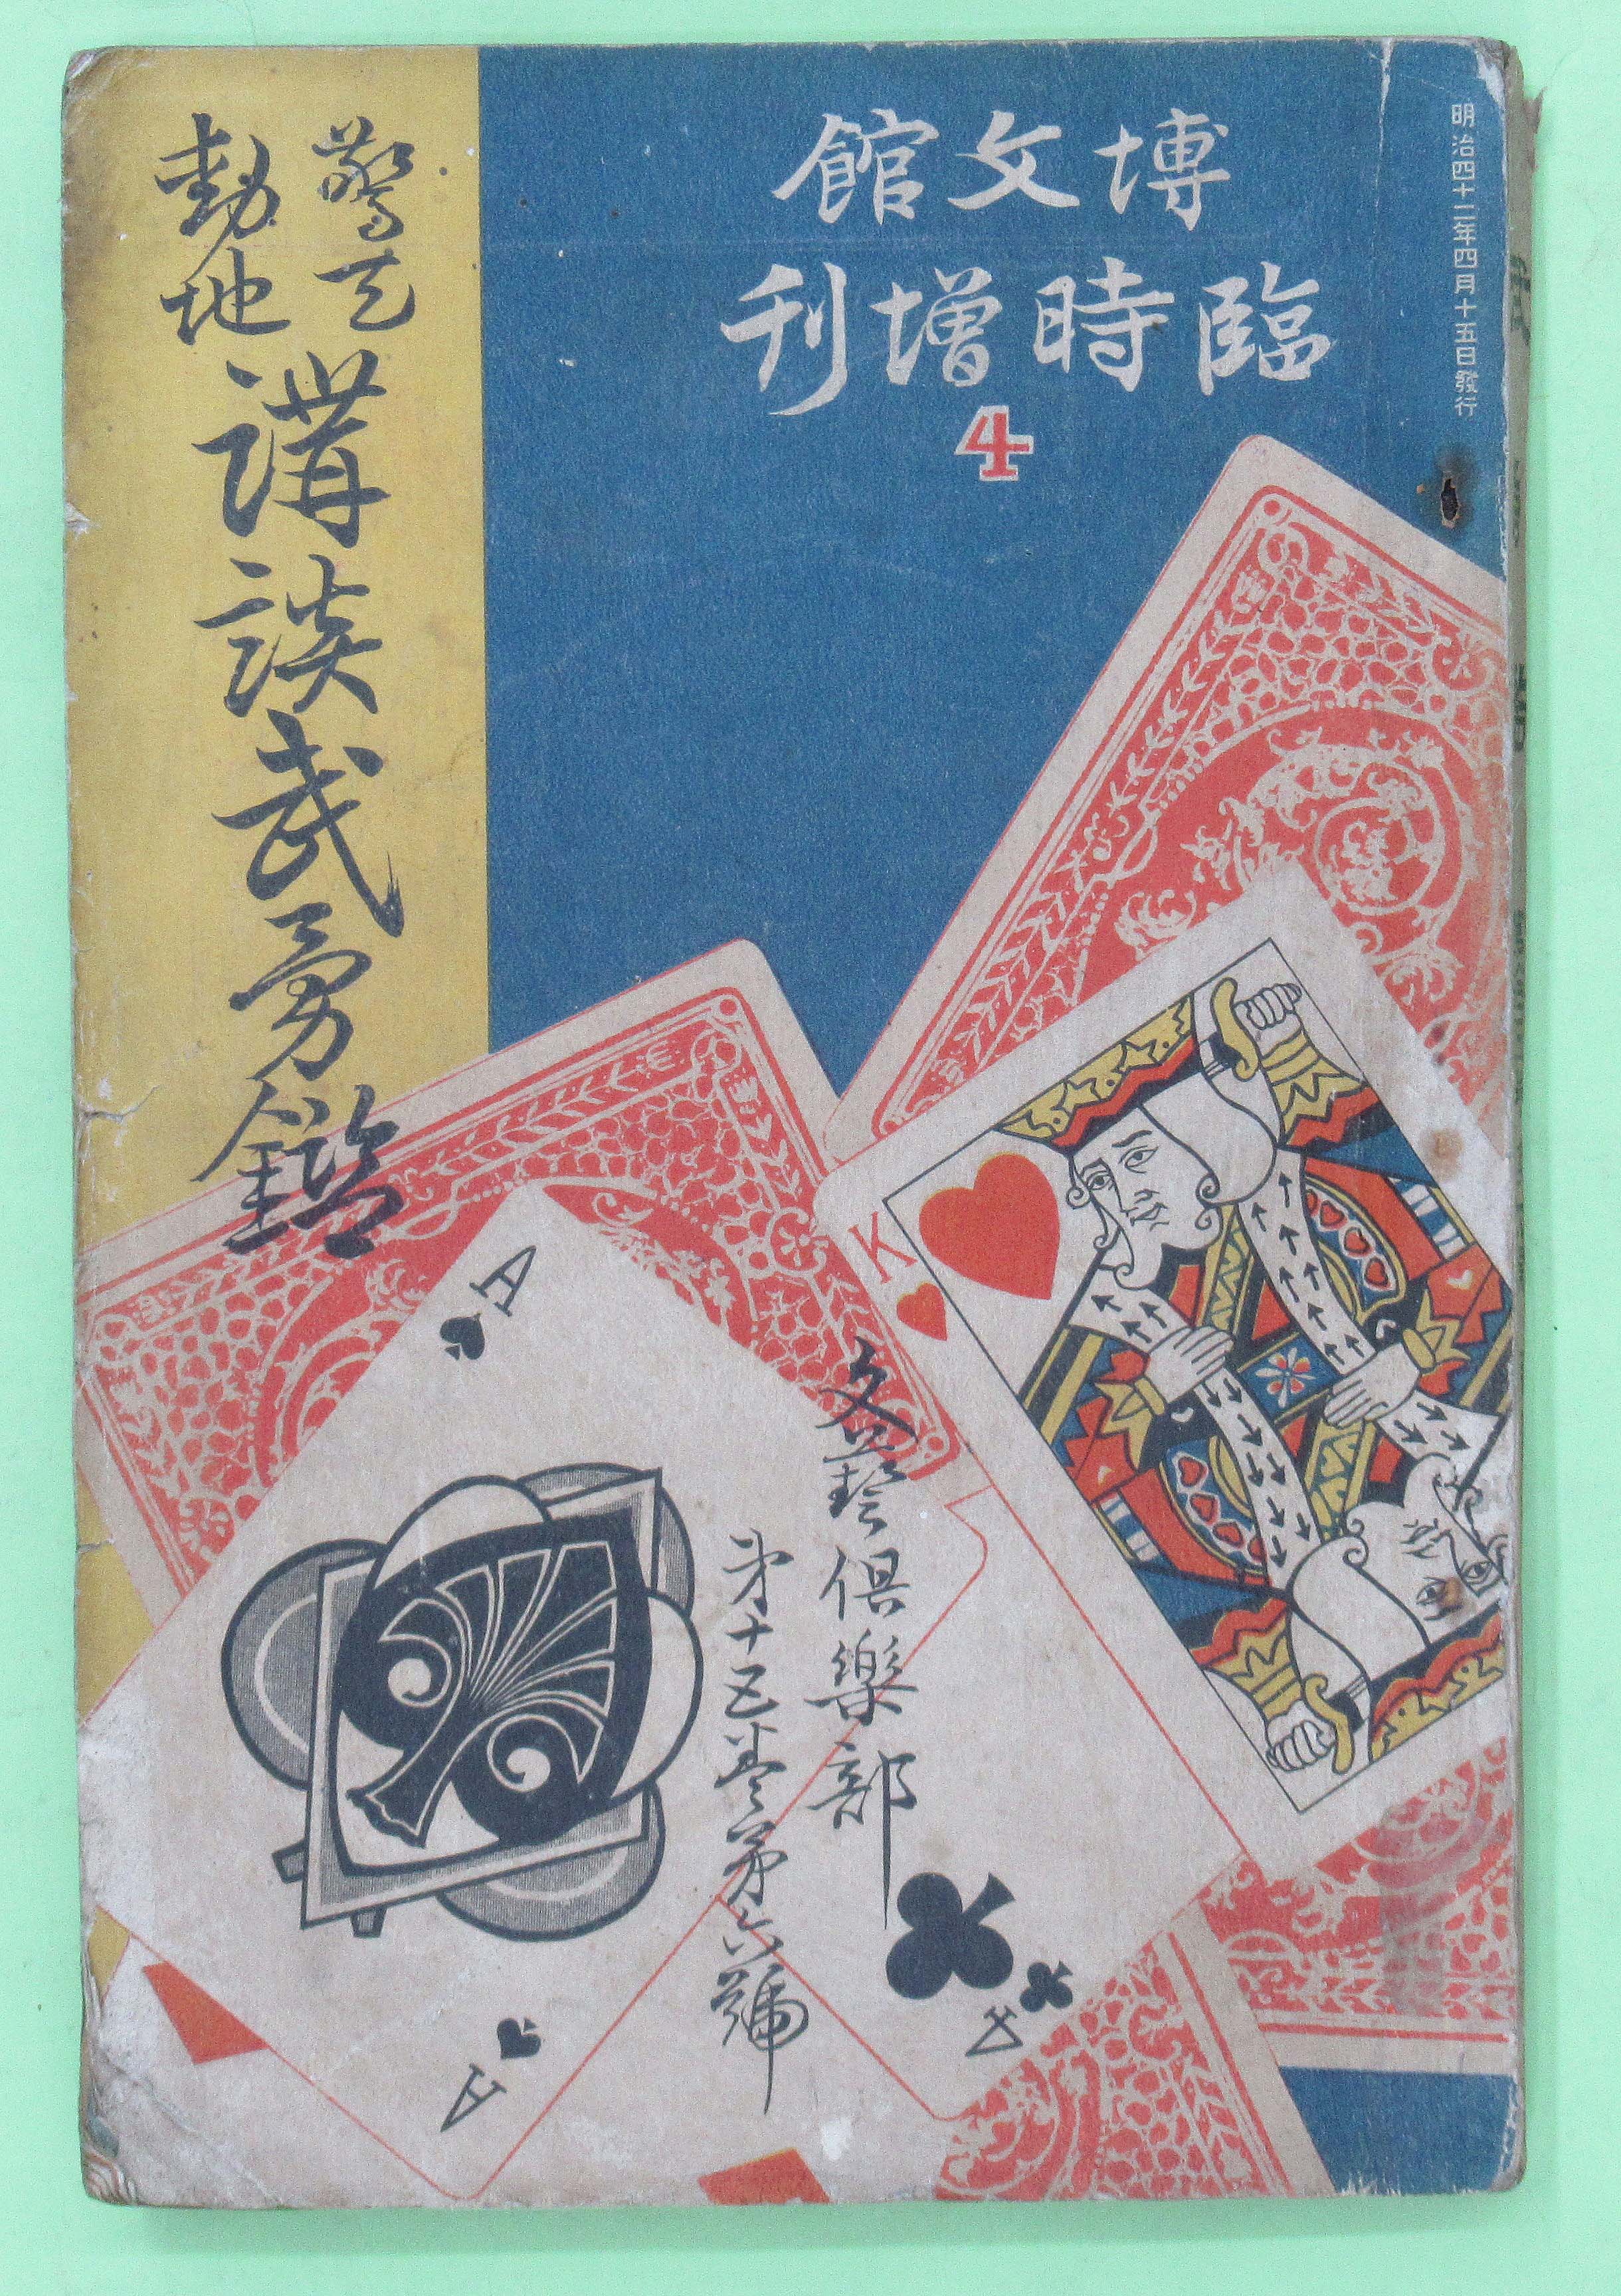 明治四十二年四月十五日發行
館文博
刊增時臨
4
驚天
動地
講談武勇鑑
文藝倶樂部
第十五卷第六號
A
K
A
K